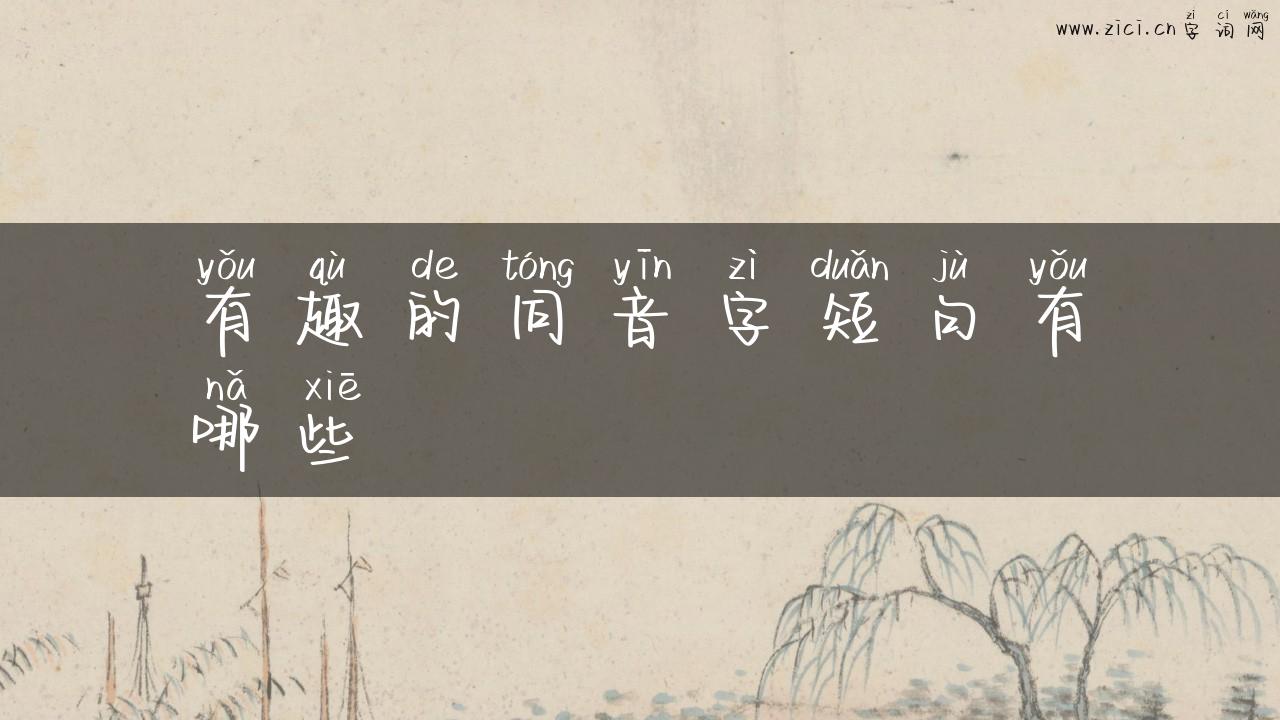 zì cí wǎng
www.zici.cn 字 词 网
yǒu qù de tóng yīn zì duǎn jù yǒu
有 趣 的 同 音 字 短 句 有
nǎ xiē
哪 些